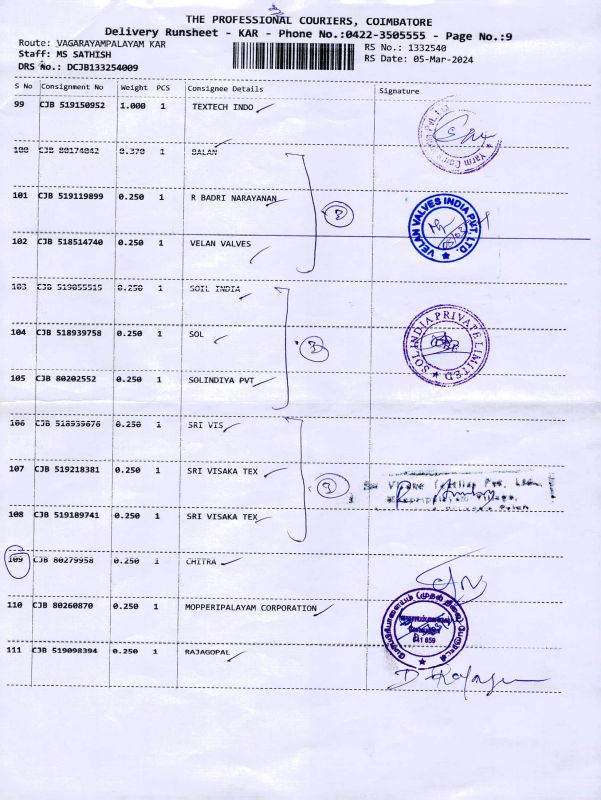 THE PROFESSIONAL COURIERS, COIMBATORE
Delivery Runsheet - KAR - Phone No.:0422-3505555 - Page No.:9
Route: VAGARAYAMPALAYAM KAR RS No.: 1332540
Staff: MS SATHISH RS Date: 05-Mar-2024
DRS No.: DCJB133254009
S No Consignment No Weight PCS Consignee Details Signature
99 CJB 519150952 1.000 1 TEXTECH INDO
100 CJB 80174042 0.370 1 BALAN
101 CJB 519119899 0.250 1 R BADRI NARAYANAN
VELAN VALVES INDIA PVT. LTD.
102 CJB 518514740 0.250 1 VELAN VALVES
103 CJB 519055515 0.250 1 SOIL INDIA
104 CJB 518939758 0.250 1 SOL
SOL INDIA PRIVATE LIMITED
105 CJB 80202552 0.250 1 SOLINDIYA PVT
106 CJB 518939676 0.250 1 SRI VIS
107 CJB 519218381 0.250 1 SRI VISAKA TEX
108 CJB 519189741 0.250 1 SRI VISAKA TEX
109 CJB 80279958 0.250 1 CHITRA
110 CJB 80260870 0.250 1 MOPPERIPALAYAM CORPORATION
111 CJB 519098394 0.250 1 RAJAGOPAL